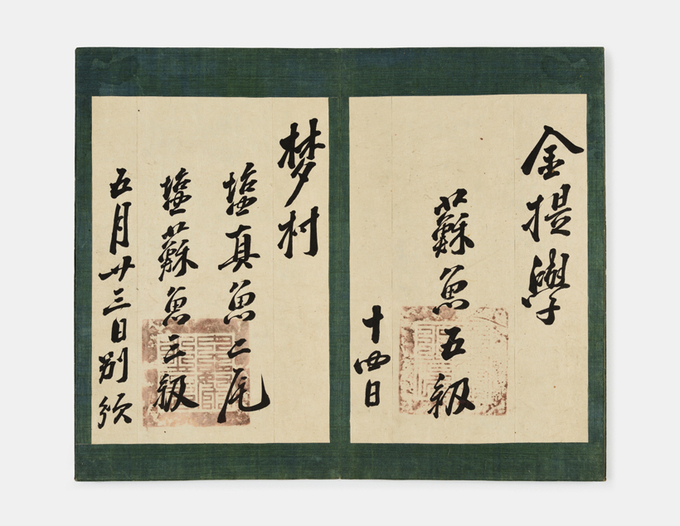 金提學
蘇魚五級
十四日
梦村
塩真魚二尾
塩蘇魚三級
五月卄三日別頒